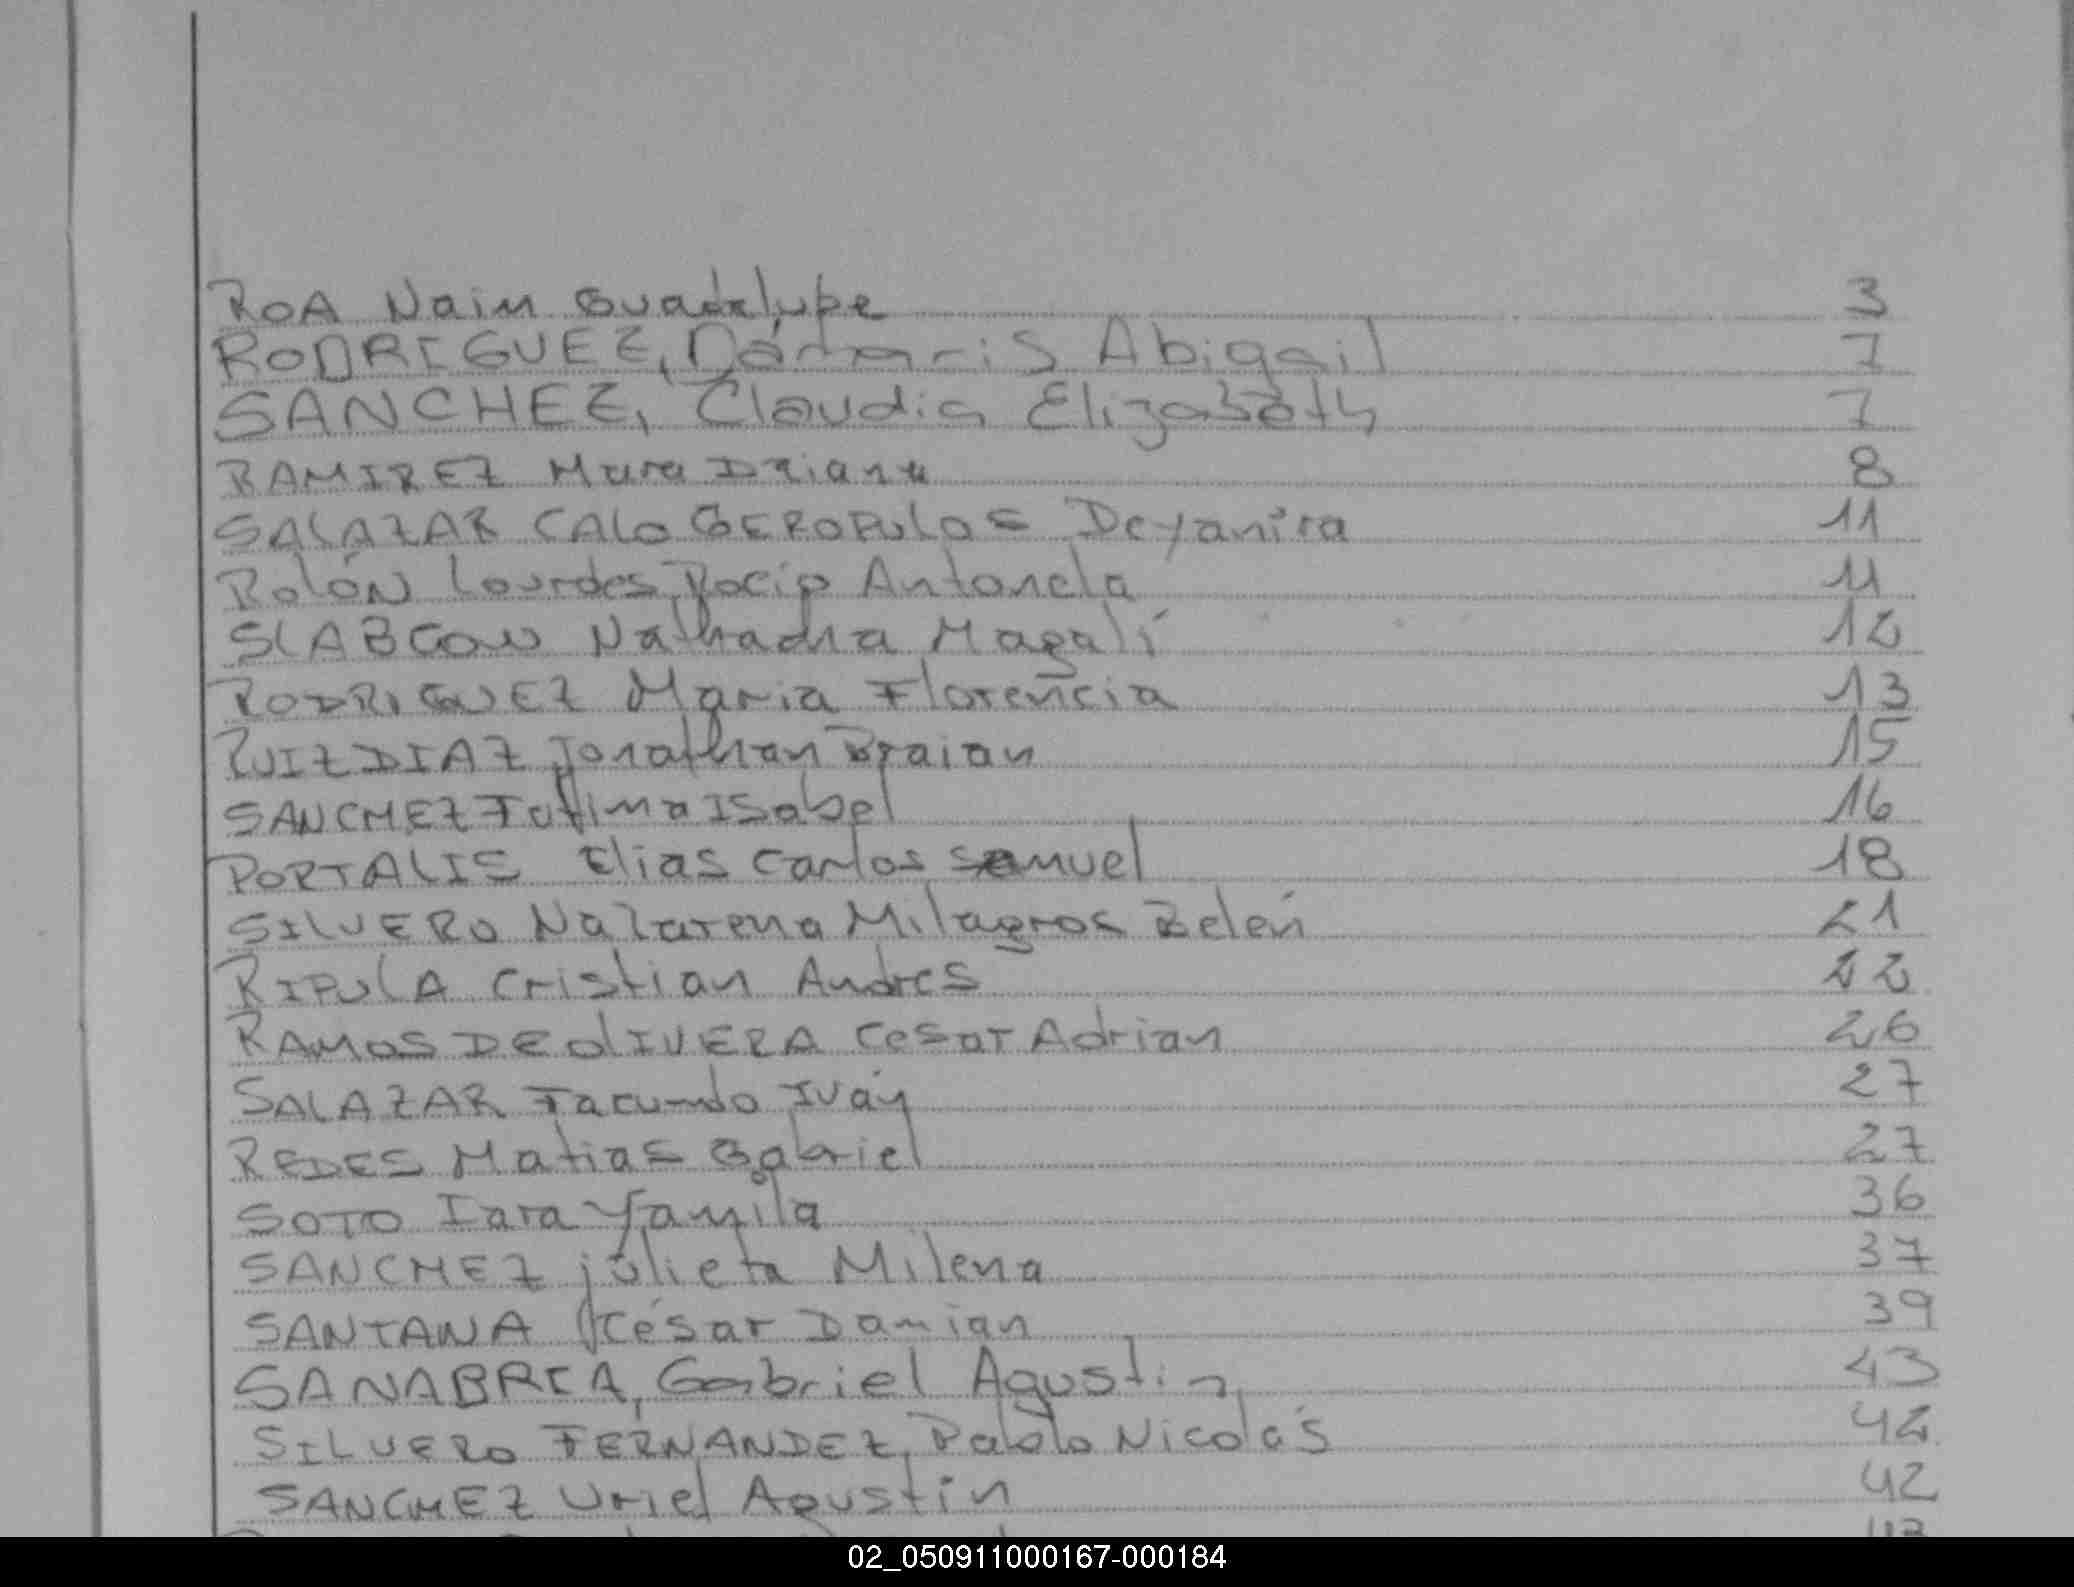 ROA Naim Guadalupe 3
RODRIGUEZ, Dámaris Abigail 7
SANCHEZ, Claudia Elizabeth 7
RAMIREZ Mara Daiana 8
SALAZAR CALOGEROPULOS Deyanira 11
ROLÓN Lourdes Rocío Antonela 11
SLABCOW Nathadna Magalí 12
RODRIGUEZ Maria Florencia 13
RUIZ DIAZ Jonathan Braian 15
SANCHEZ Fatima Isabel 16
PORTALIS Elias Carlos Samuel 18
SILVERO Nazarena Milagros Belén 21
RIPULA Cristian Andres 22
RAMOS DE OLIVERA Cesar Adrian 26
SALAZAR Facundo Iván 27
REDES Matias Gabriel 27
SOTO Iara Yamila 36
SANCHEZ julieta Milena 37
SANTANA César Damian 39
SANABRIA, Gabriel Agustin 43
SILVERO FERNANDEZ, Pablo Nicolás 42
SANCHEZ Uriel Agustín 42
02_050911000167-000184